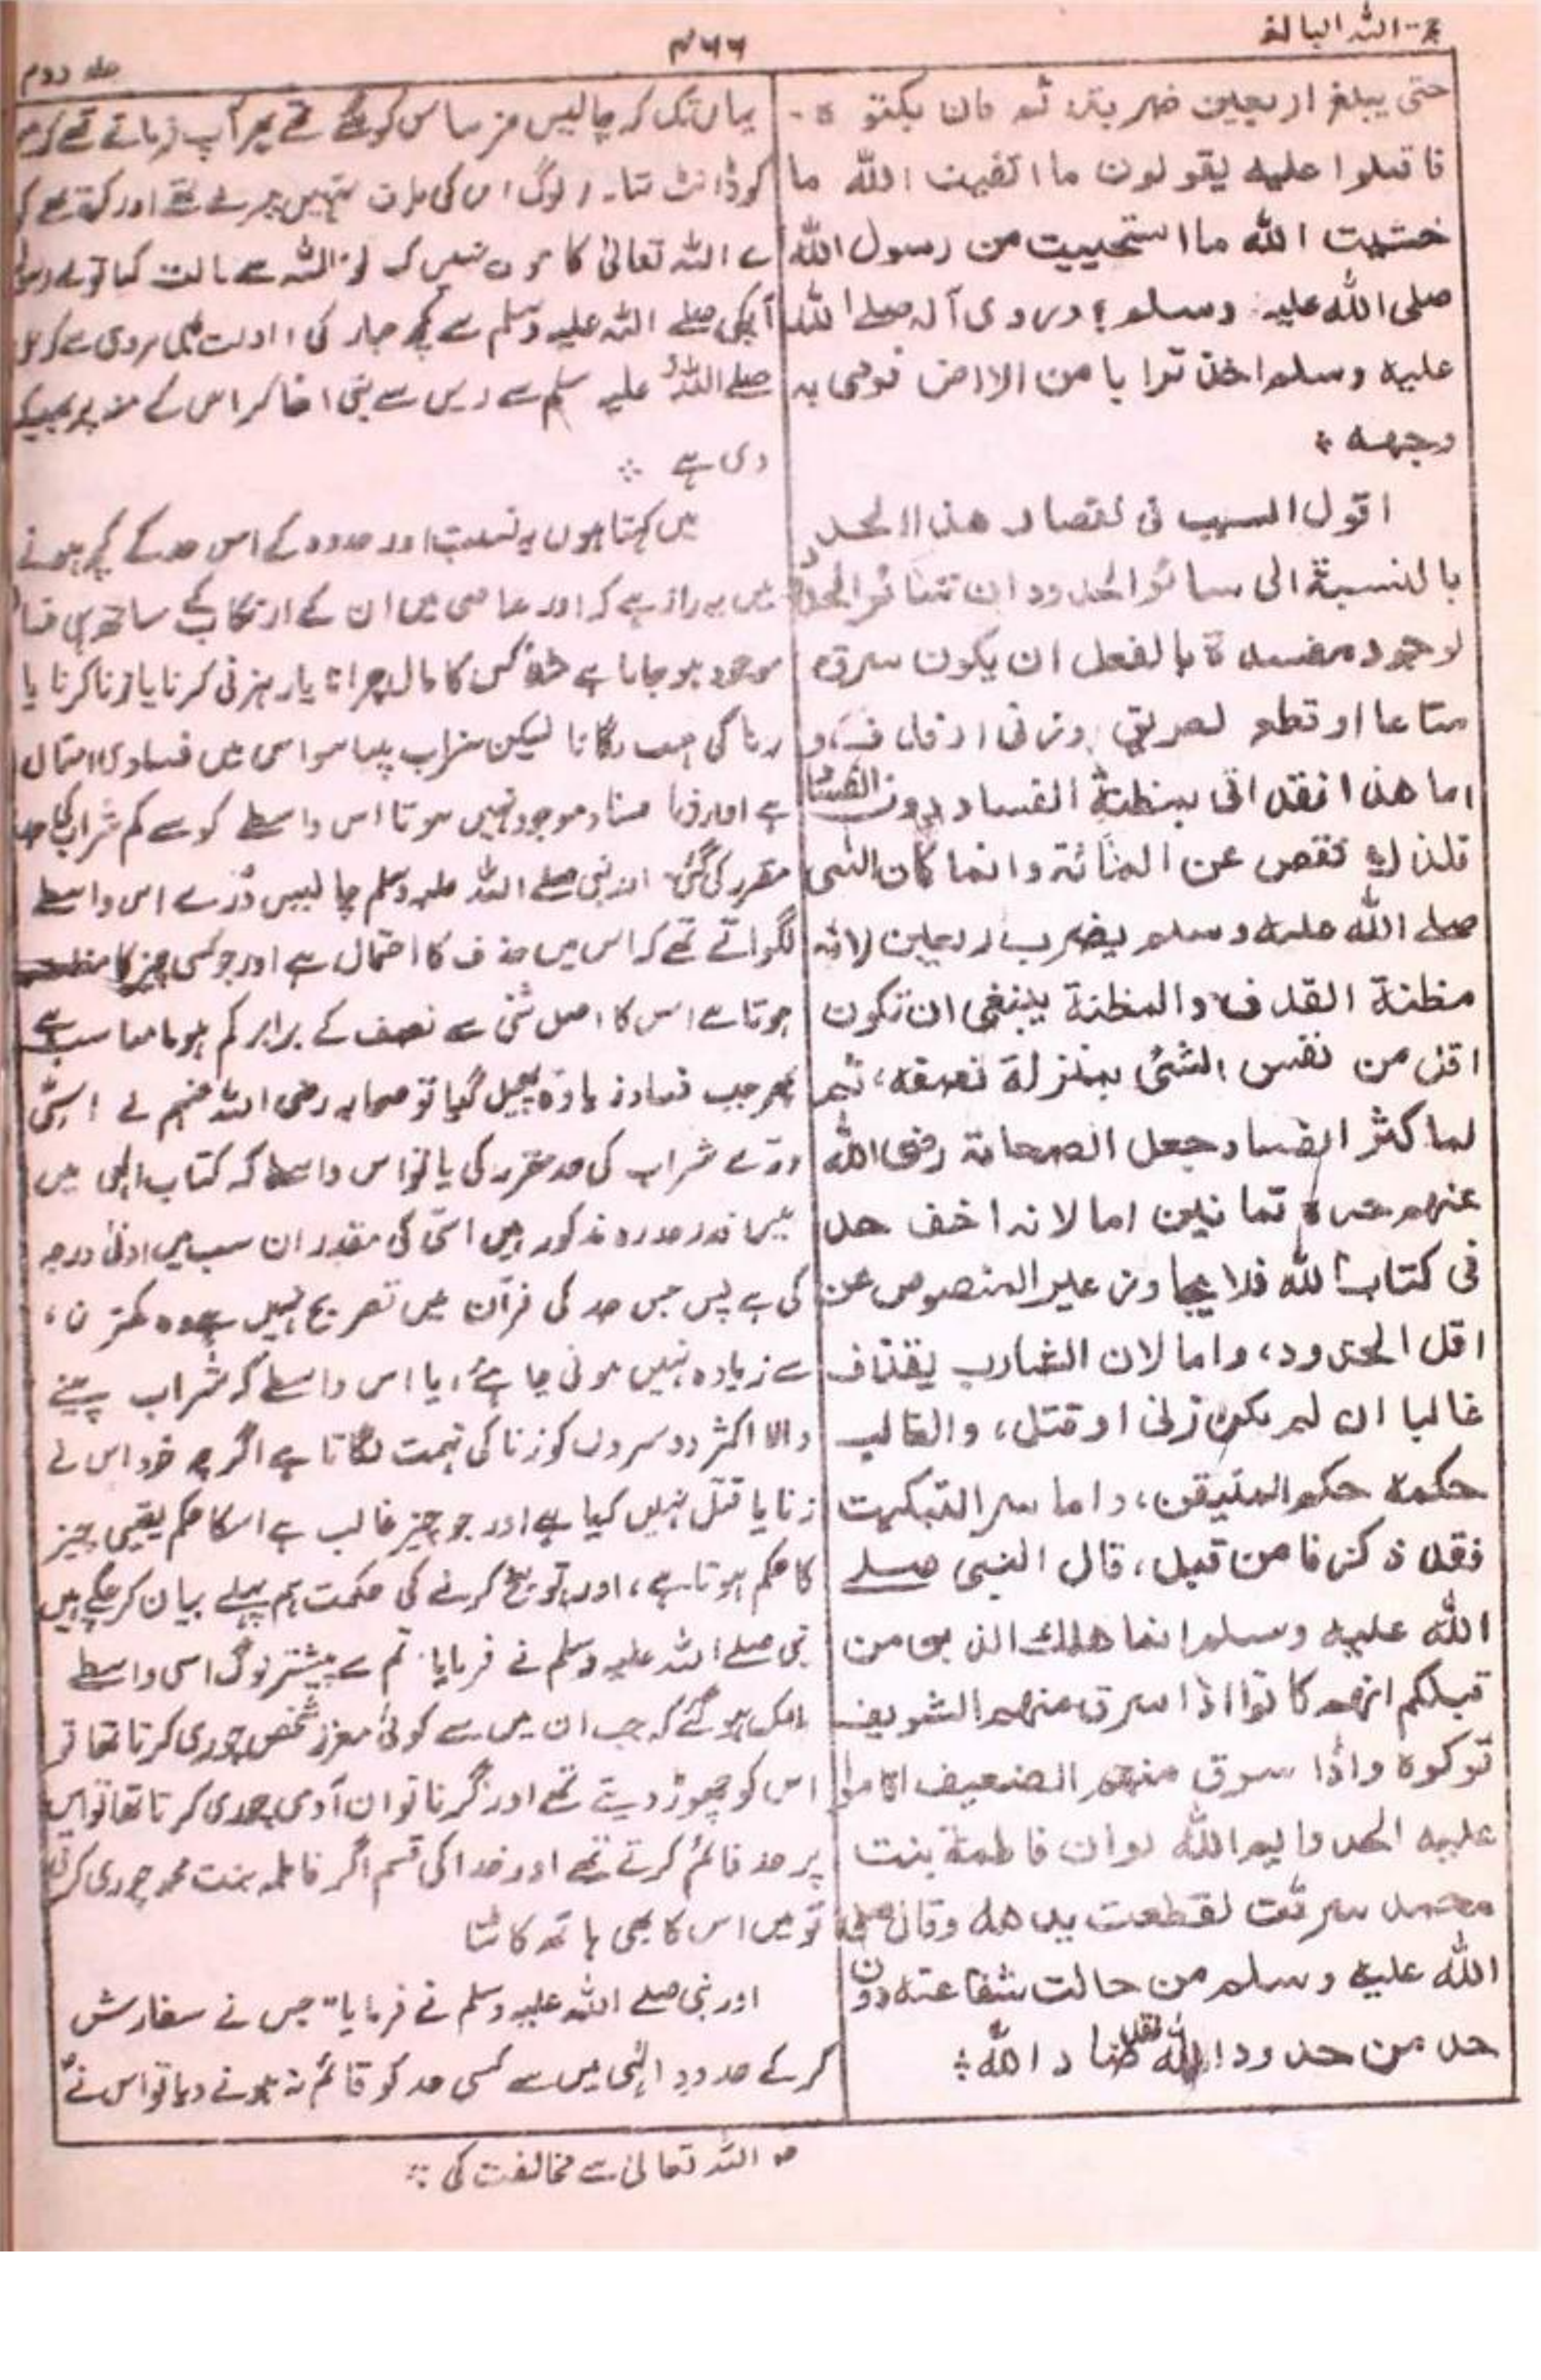 حجۃ اللہ البالغہ
۴۶۶
جلد دوم
حتى يبلغ اربعين ضربة ثم قال بكتوه
فاقبلوا عليه يقولون ما اتقيت الله ما
خشيت الله ما استحييت من رسول الله
صلى الله عليه وسلم؛ وروى انه صلے الله
عليه وسلم اخذ ترابا من الارض فرمى به
وجهه
اقول السبب فى نقصان هذا الحد
بالنسبة الى سائر الحدود ان سائر الحدود
لوجود مفسدة بالفعل ان يكون سرق
متاعا او قطع الطريق او زنى او قذف، و
اما هذا فقد اتى بمظنة الفساد دون الفساد
فلذلك نقص عن المائة وانما كان النبى
صلے الله عليه وسلم يضرب اربعين لانه
مظنة القذف والمظنة ينبغى ان تكون
اقل من نفس الشئ بمنزلة نصفه، ثم
لما كثر الفساد جعل الصحابة رضى الله
عنهم حده ثمانين اما لانه اخف حد
فى كتاب الله فلا يجاوز غير المنصوص عن
اقل الحدود، واما لان الشارب يقذف
غالبا ان لم يكن زنى او قتل، والغالب
حكمه حكم المتيقن، واما سر التبكيت
فقد ذكرنا من قبل، قال النبى صلے
الله عليه وسلم انما هلك الذين من
قبلكم انهم كانوا اذا سرق منهم الشريف
تركوه واذا سرق منهم الضعيف اقاموا
عليه الحد وايم الله لو ان فاطمة بنت
محمد سرقت لقطعت يدها وقال صلى
الله عليه وسلم من حالت شفاعته دون
حد من حدود الله فقد ضاد الله
یہاں تک کہ چالیس پھر آپ فرماتے تھے کہ
کو ڈانٹ لوگ اس کی طرف اور کہتے تھے کہ
اللہ تعالیٰ کا خوف نہیں کیا تو اللہ سے
صلے اللہ علیہ وسلم سے کچھ
صلے اللہ علیہ وسلم نے زمین سے مٹی اٹھا کر اس کے منہ پر پھینک
دی ہے
میں کہتا ہوں بہ نسبت اور حدود کے اس حد کے کچھ ہونے
میں یہ راز ہے کہ اور معاصی میں ان کے ارتکاب کے ساتھ ہی فساد
موجود ہو جاتا ہے مثلاً کسی کا مال چرانا یا رہزنی کرنا یا زنا کرنا یا
زنا کی تہمت لگانا لیکن شراب پینا سو اس میں فساد کا احتمال
ہے اور فوراً فساد موجود نہیں ہوتا اس واسطے سو سے کم شراب کی حد
مقرر کی گئی اور نبی صلے اللہ علیہ وسلم چالیس دُرّے اس واسطے
لگواتے تھے کہ اس میں قذف کا احتمال ہے اور جو کسی چیز کا مظنہ
ہوتا ہے اس کا اصل شئی سے نصف کے برابر کم ہونا مناسب ہے
پھر جب فساد زیادہ پھیل گیا تو صحابہ رضی اللہ عنہم نے اسّی
درّے شراب کی حد مقرر کی یا تو اس واسطے کہ کتاب الہی میں
جس قدر حدود مذکور ہیں اسّی کی مقدار ان سب میں ادنیٰ درجہ
کی ہے پس جس حد کی قرآن میں تصریح نہیں ہے وہ کمترین
سے زیادہ نہیں ہونی چاہئے، یا اس واسطے کہ شراب پینے
والا اکثر دوسروں کو زنا کی تہمت لگاتا ہے اگرچہ خود اس نے
زنا یا قتل نہیں کیا ہے اور جو چیز غالب ہے اسکا حکم یقینی چیز
کا حکم ہوتا ہے، اور توبیخ کرنے کی حکمت ہم پہلے بیان کر چکے ہیں
نبی صلے اللہ علیہ وسلم نے فرمایا تم سے پیشتر لوگ اسی واسطے
ہلاک ہو گئے کہ جب ان میں سے کوئی معزز شخص چوری کرتا تھا تو
اس کو چھوڑ دیتے تھے اور گر ناتوان آدمی چوری کرتا تھا تو اس
پر حد قائم کرتے تھے اور خدا کی قسم اگر فاطمہ بنت محمد چوری کرتی
تو میں اس کا بھی ہاتھ کاٹتا
اور نبی صلے اللہ علیہ وسلم نے فرمایا "جس نے سفارش
کر کے حدودِ الٰہی میں سے کسی حد کو قائم نہ ہونے دیا تو اس نے
اللہ تعالیٰ سے مخالفت کی